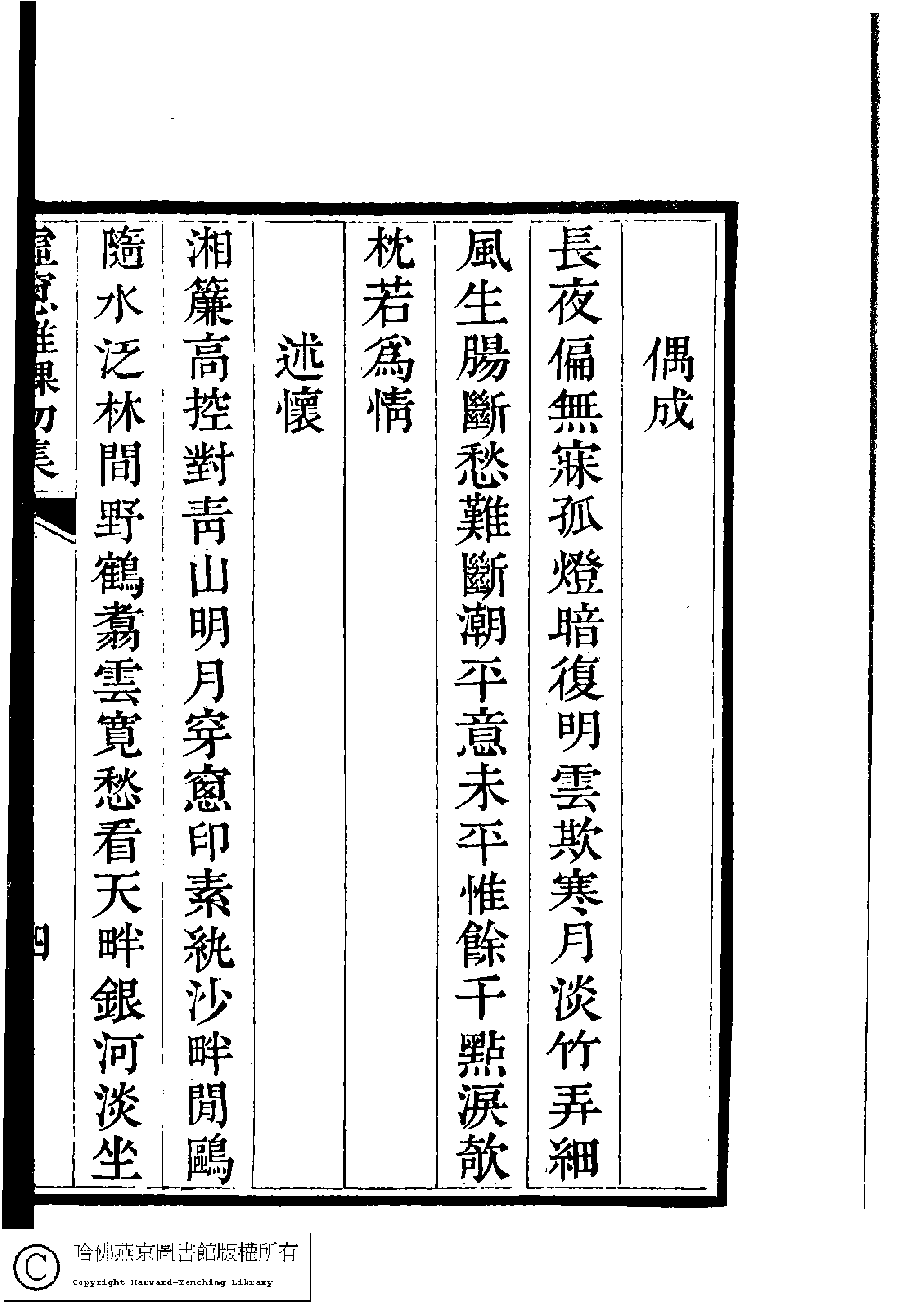 偶成
長夜偏無寐孤燈暗復明雲欺寒月淡竹弄細
風生腸斷愁難斷潮平意未平惟餘千點淚欹
枕若爲情
述懷
湘簾高控對靑山明月穿窻印素紈沙畔閒鷗
隨水泛林間野鶴翥雲寬愁看天畔銀河淡坐
課初集
四
哈佛燕京圖書館版權所有
Copyright Harvard-Yenching Library